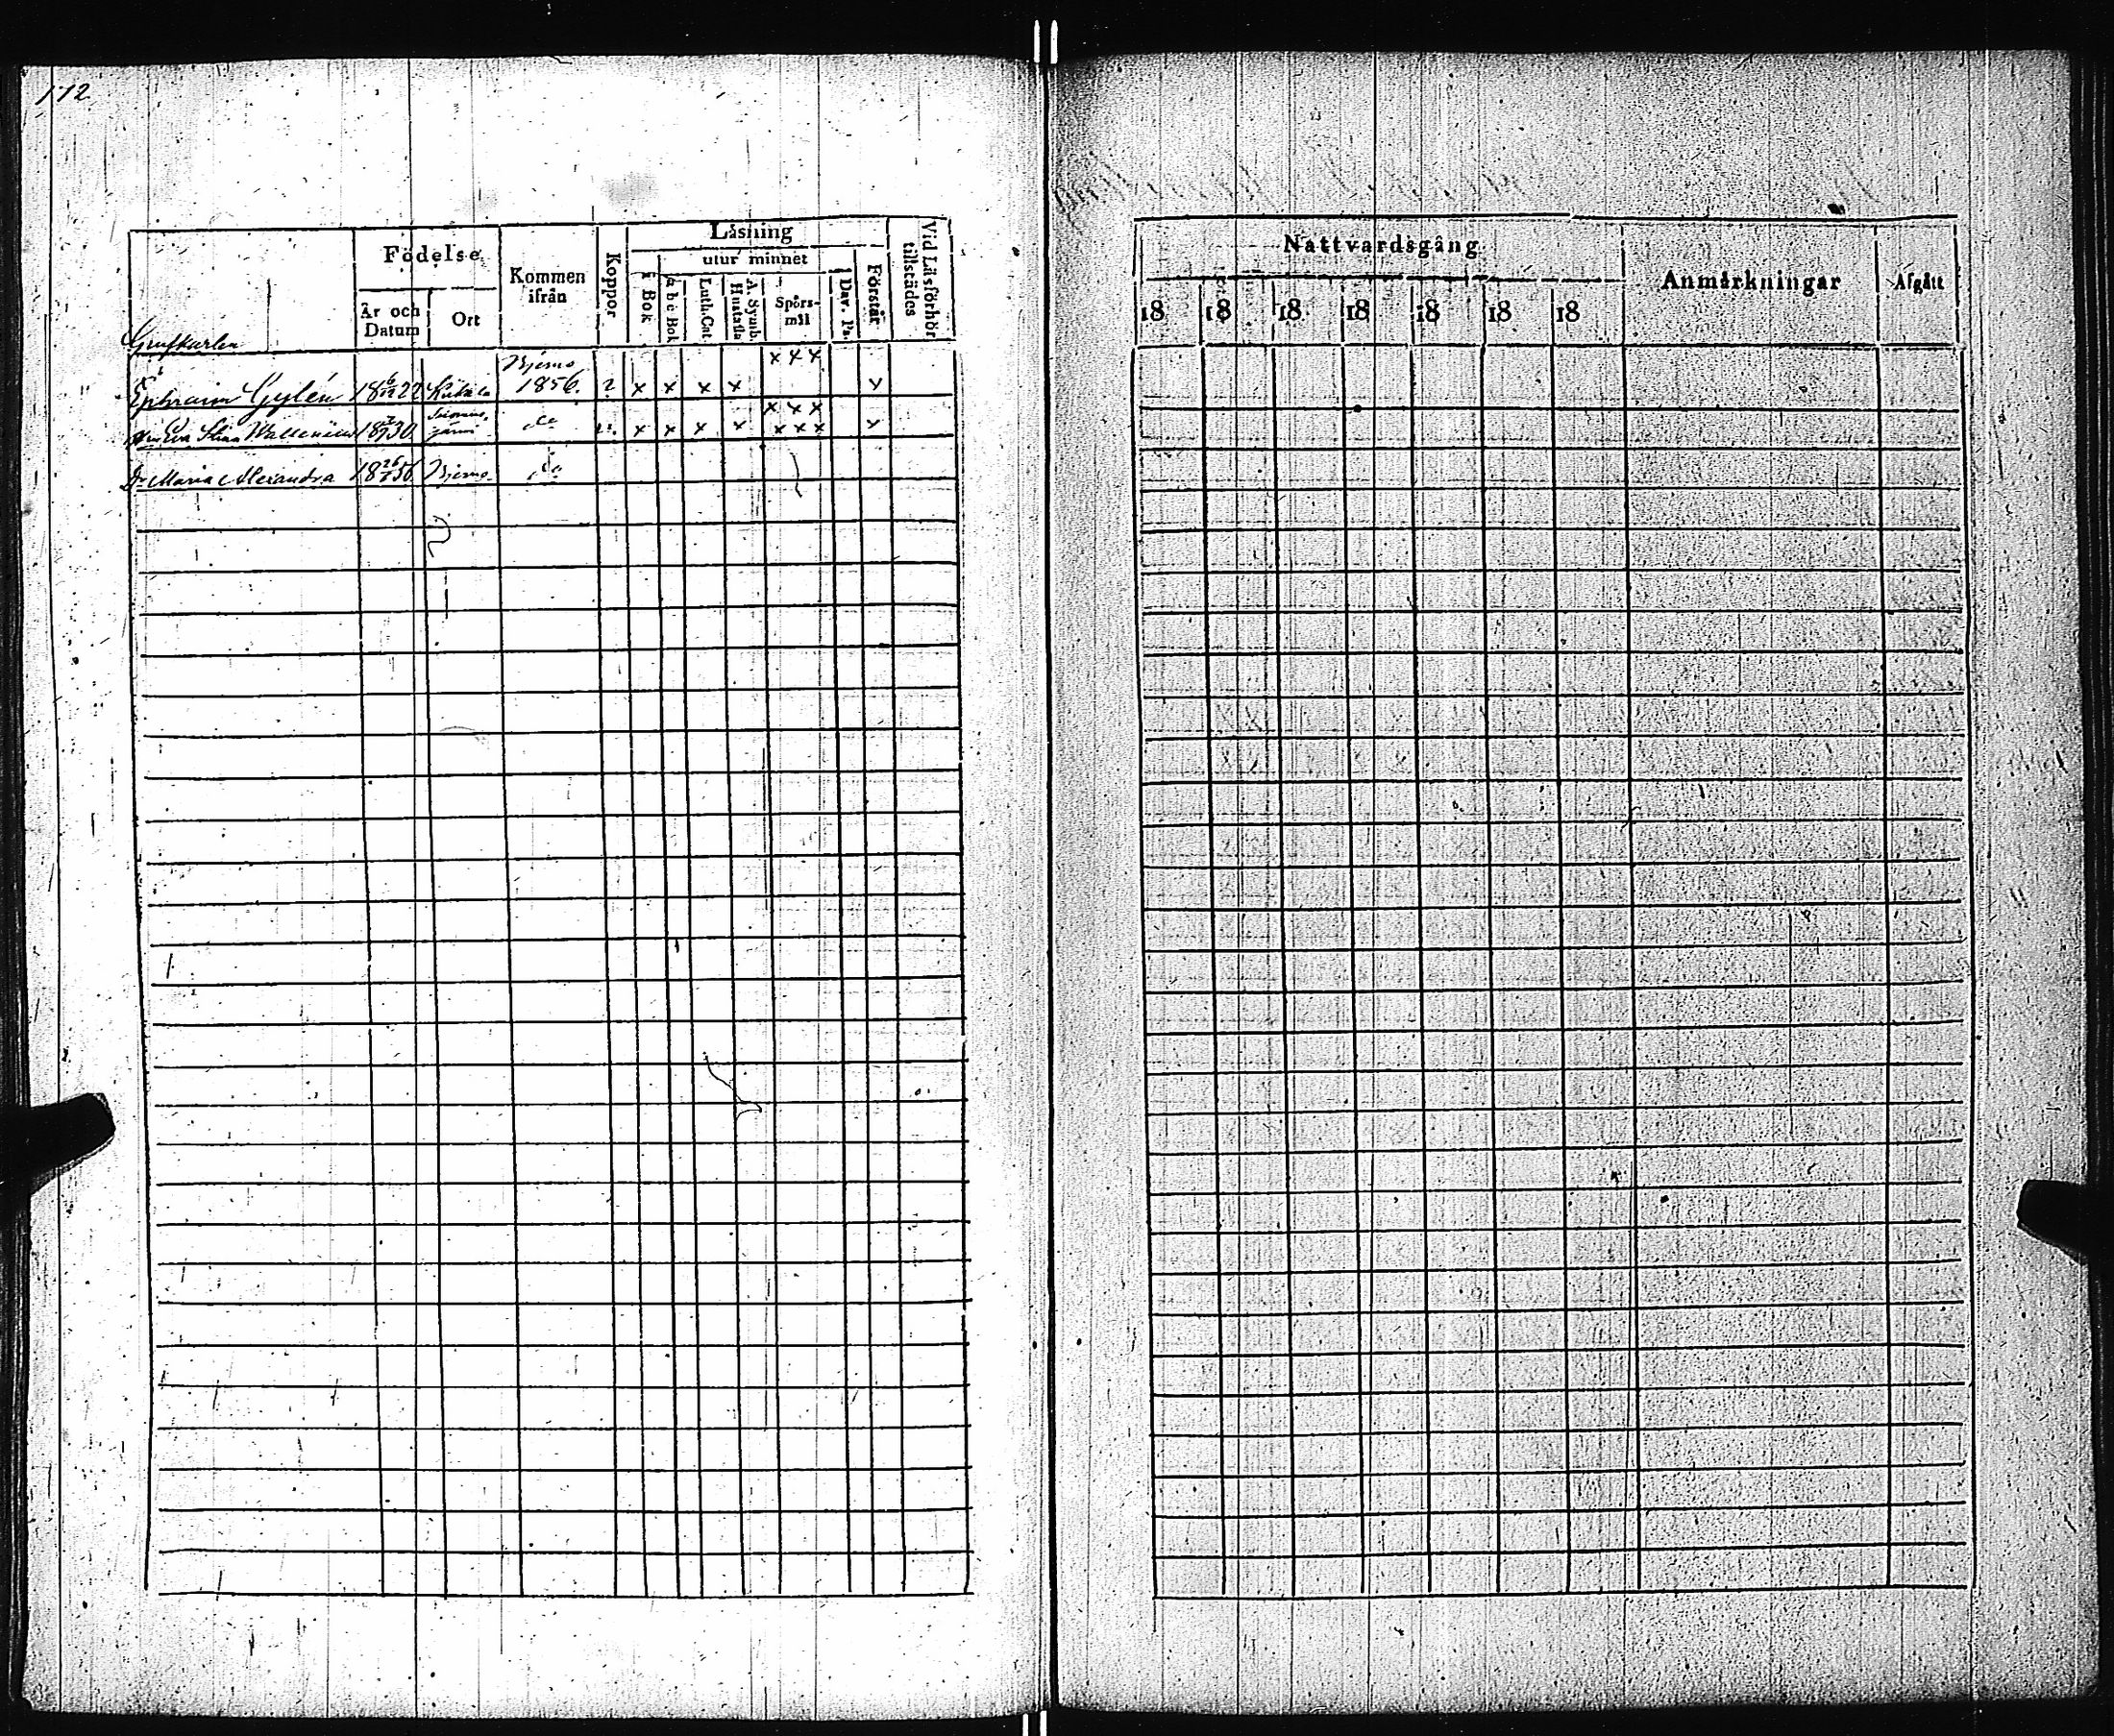 112
Födelse
Kommen ifrån
Koppor
Läsning
utur minnet
i Bok
a b c Bok
Luth. Cat.
A. Symb. Hustafla
Spörsmål
Dav. Ps.
Förstår
Vid Läsförhör tillstädes
År och Datum
Ort
Nattvardsgång
Anmärkningar
Afgått
18 18 18 18 18 18 18
Grufkarlen
Bjerno
x x x
Ephraim Gylén 18 6/12 22 Kiikala 1856. 2 x x x x x
x x x
Eva Stina Wallenius 18 30 do x x x x x x x x
Dr Maria Alexandra 18 26 56 Bjerno do